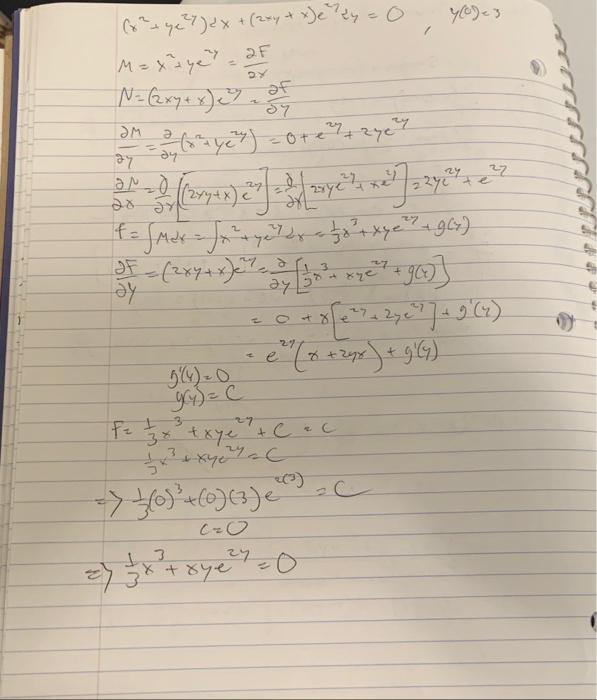 (x² + ye^{2y})dx + (2xy + x)e^{2y}dy = 0 , y(0)=3
M = x² + ye^{2y} = ∂F/∂x
N = (2xy + x)e^{2y} = ∂F/∂y
∂M/∂y = ∂/∂y (x² + ye^{2y}) = 0 + e^{2y} + 2ye^{2y}
∂N/∂x = ∂/∂x [(2xy + x)e^{2y}] = ∂/∂x [2xye^{2y} + xe^{2y}] = 2ye^{2y} + e^{2y}
f = ∫Mdx = ∫x² + ye^{2y}dx = 1/3 x³ + xye^{2y} + g(y)
∂F/∂y = (2xy + x)e^{2y} = ∂/∂y [1/3 x³ + xye^{2y} + g(y)]
= 0 + x[e^{2y} + 2ye^{2y}] + g'(y)
= e^{2y}(x + 2yx) + g'(y)
g'(y) = 0
g(y) = C
F = 1/3 x³ + xye^{2y} + C = C
1/3 x³ + xye^{2y} = C
=> 1/3 (0)³ + (0)(3)e^{2(3)} = C
C = 0
=> 1/3 x³ + xye^{2y} = 0